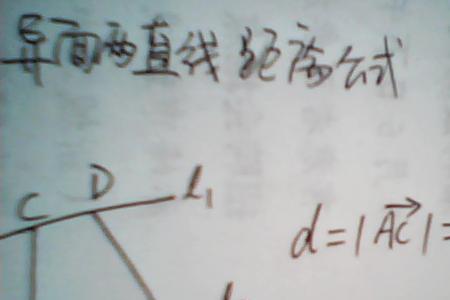 异面两直线距离公式
C D l₁
d=|AC|=